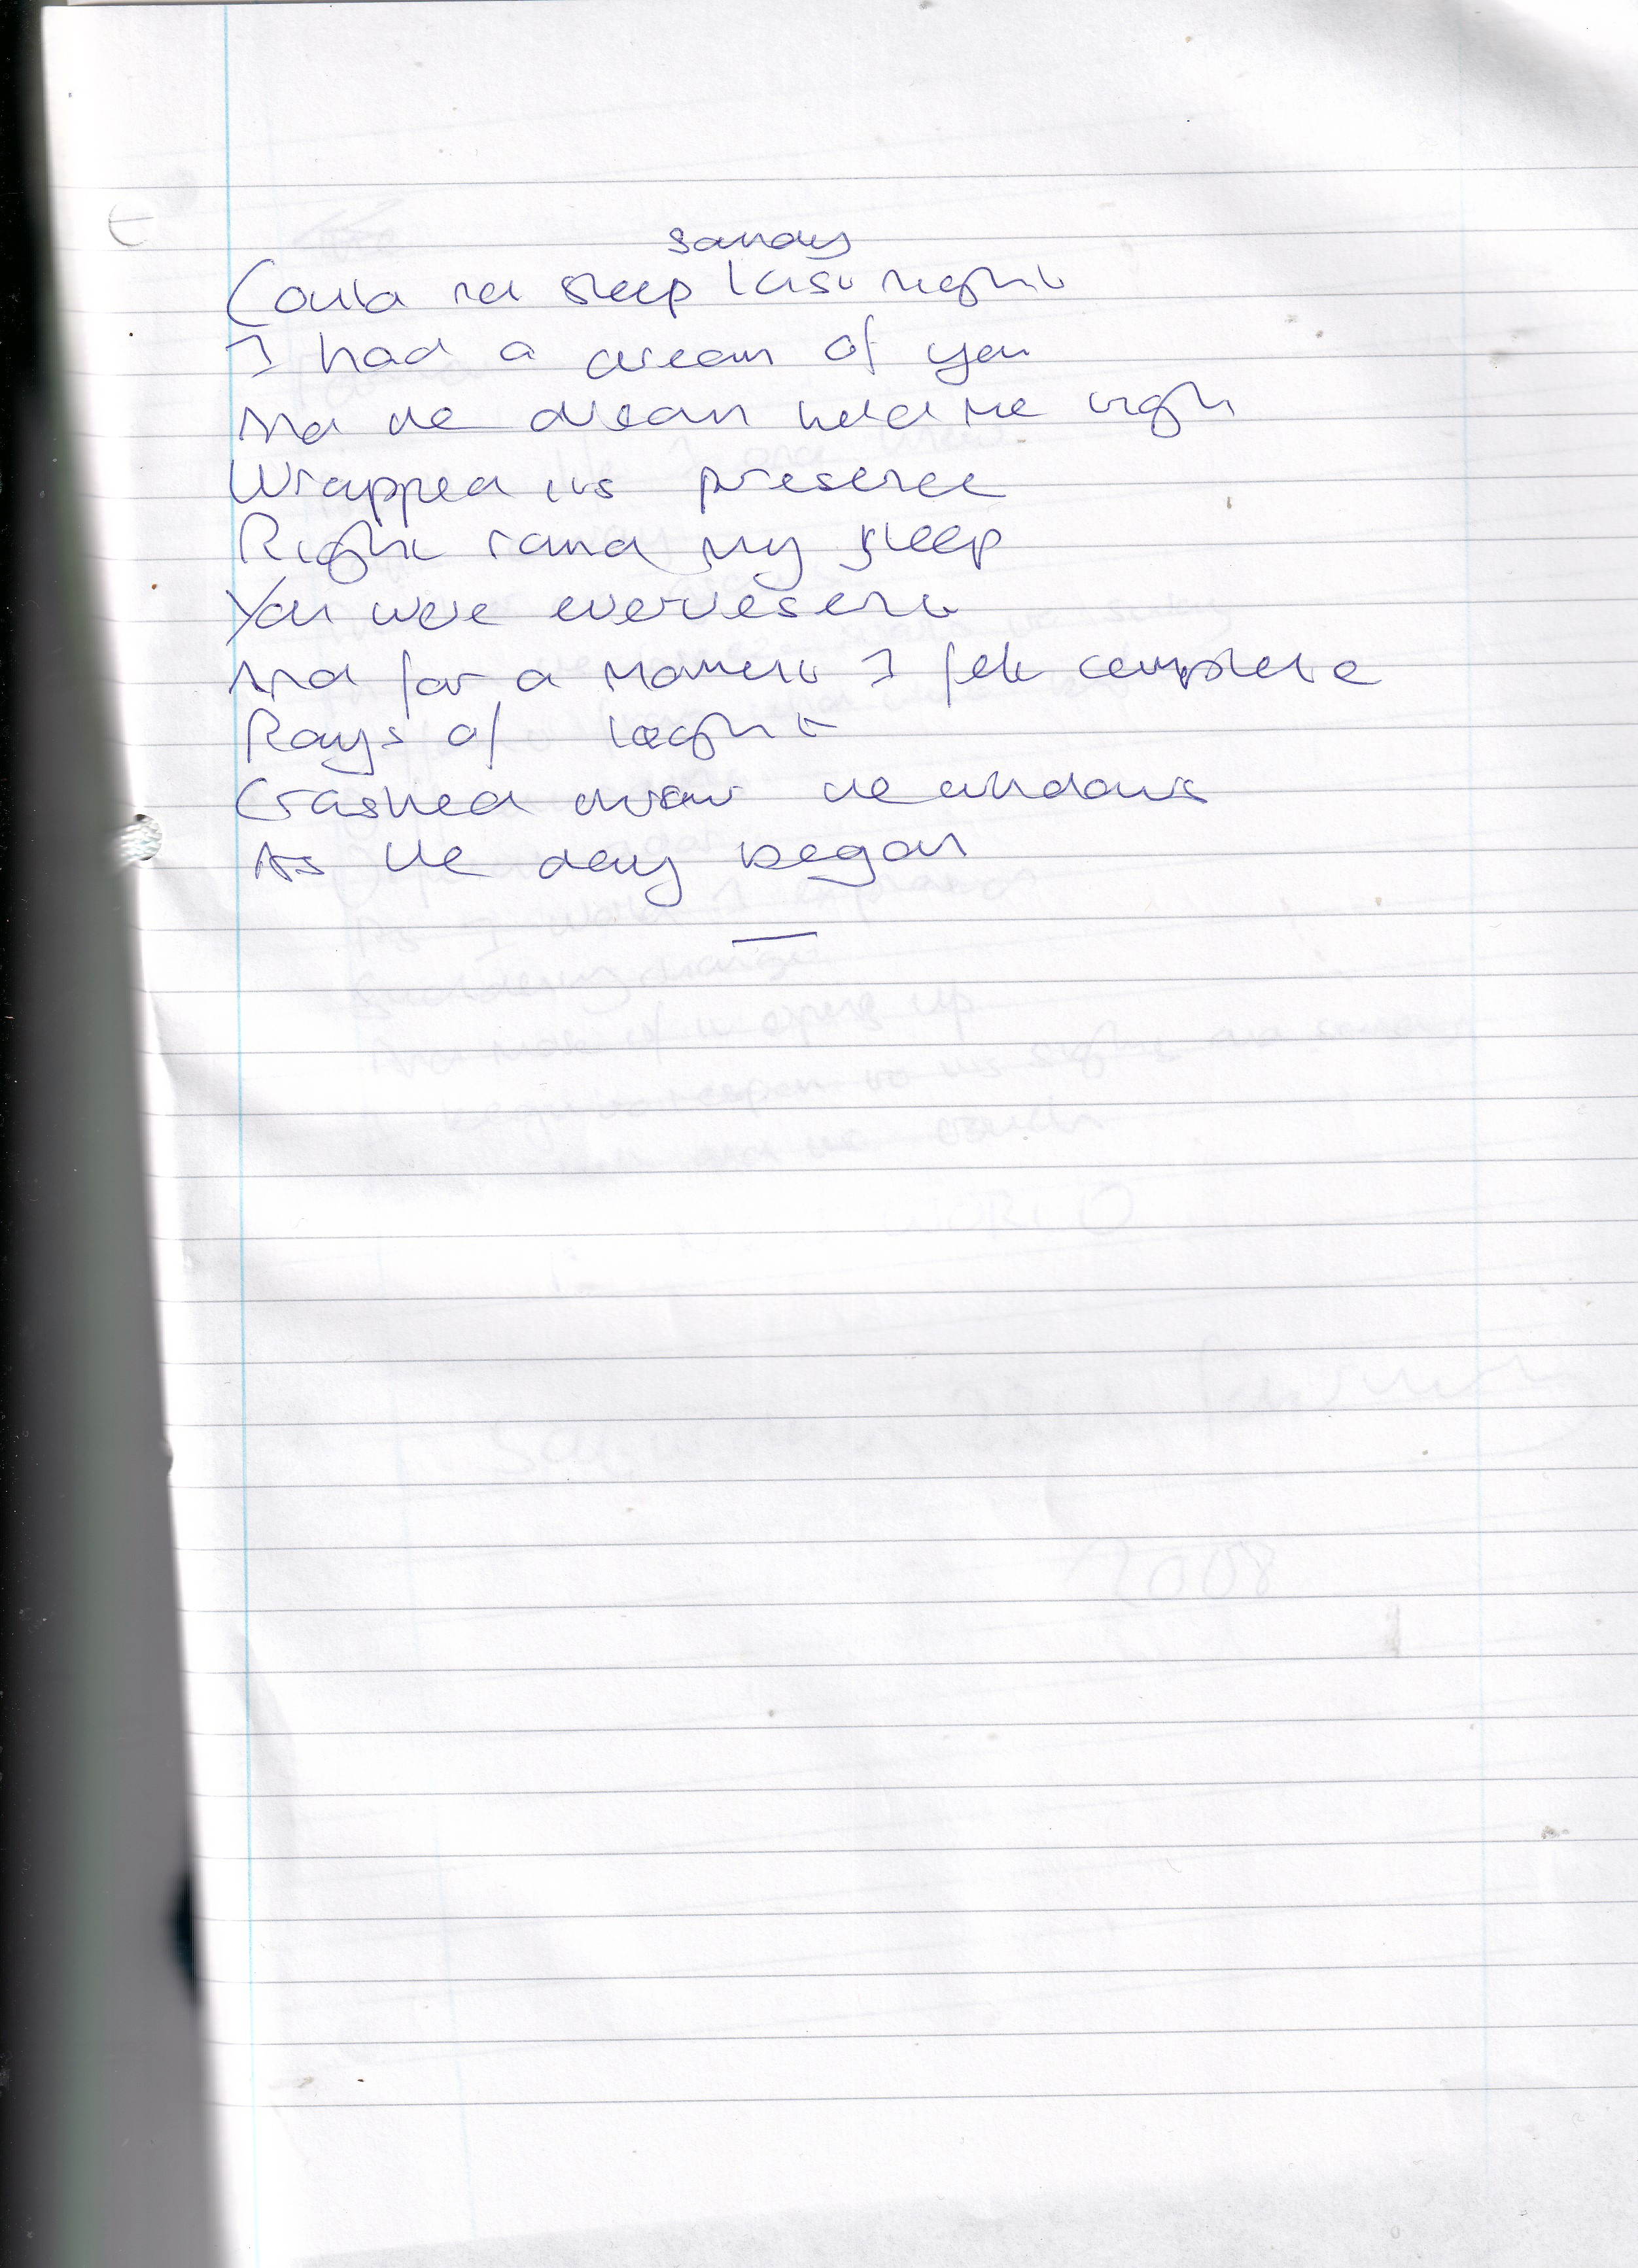 Sandy
Could not sleep last night
I had a dream of you
And the dream held me tight
Wrapped its presence
Right round my sleep
You were evervesent
And for a moment I felt complete
Rays of light
Crashed threw the windows
As the day began